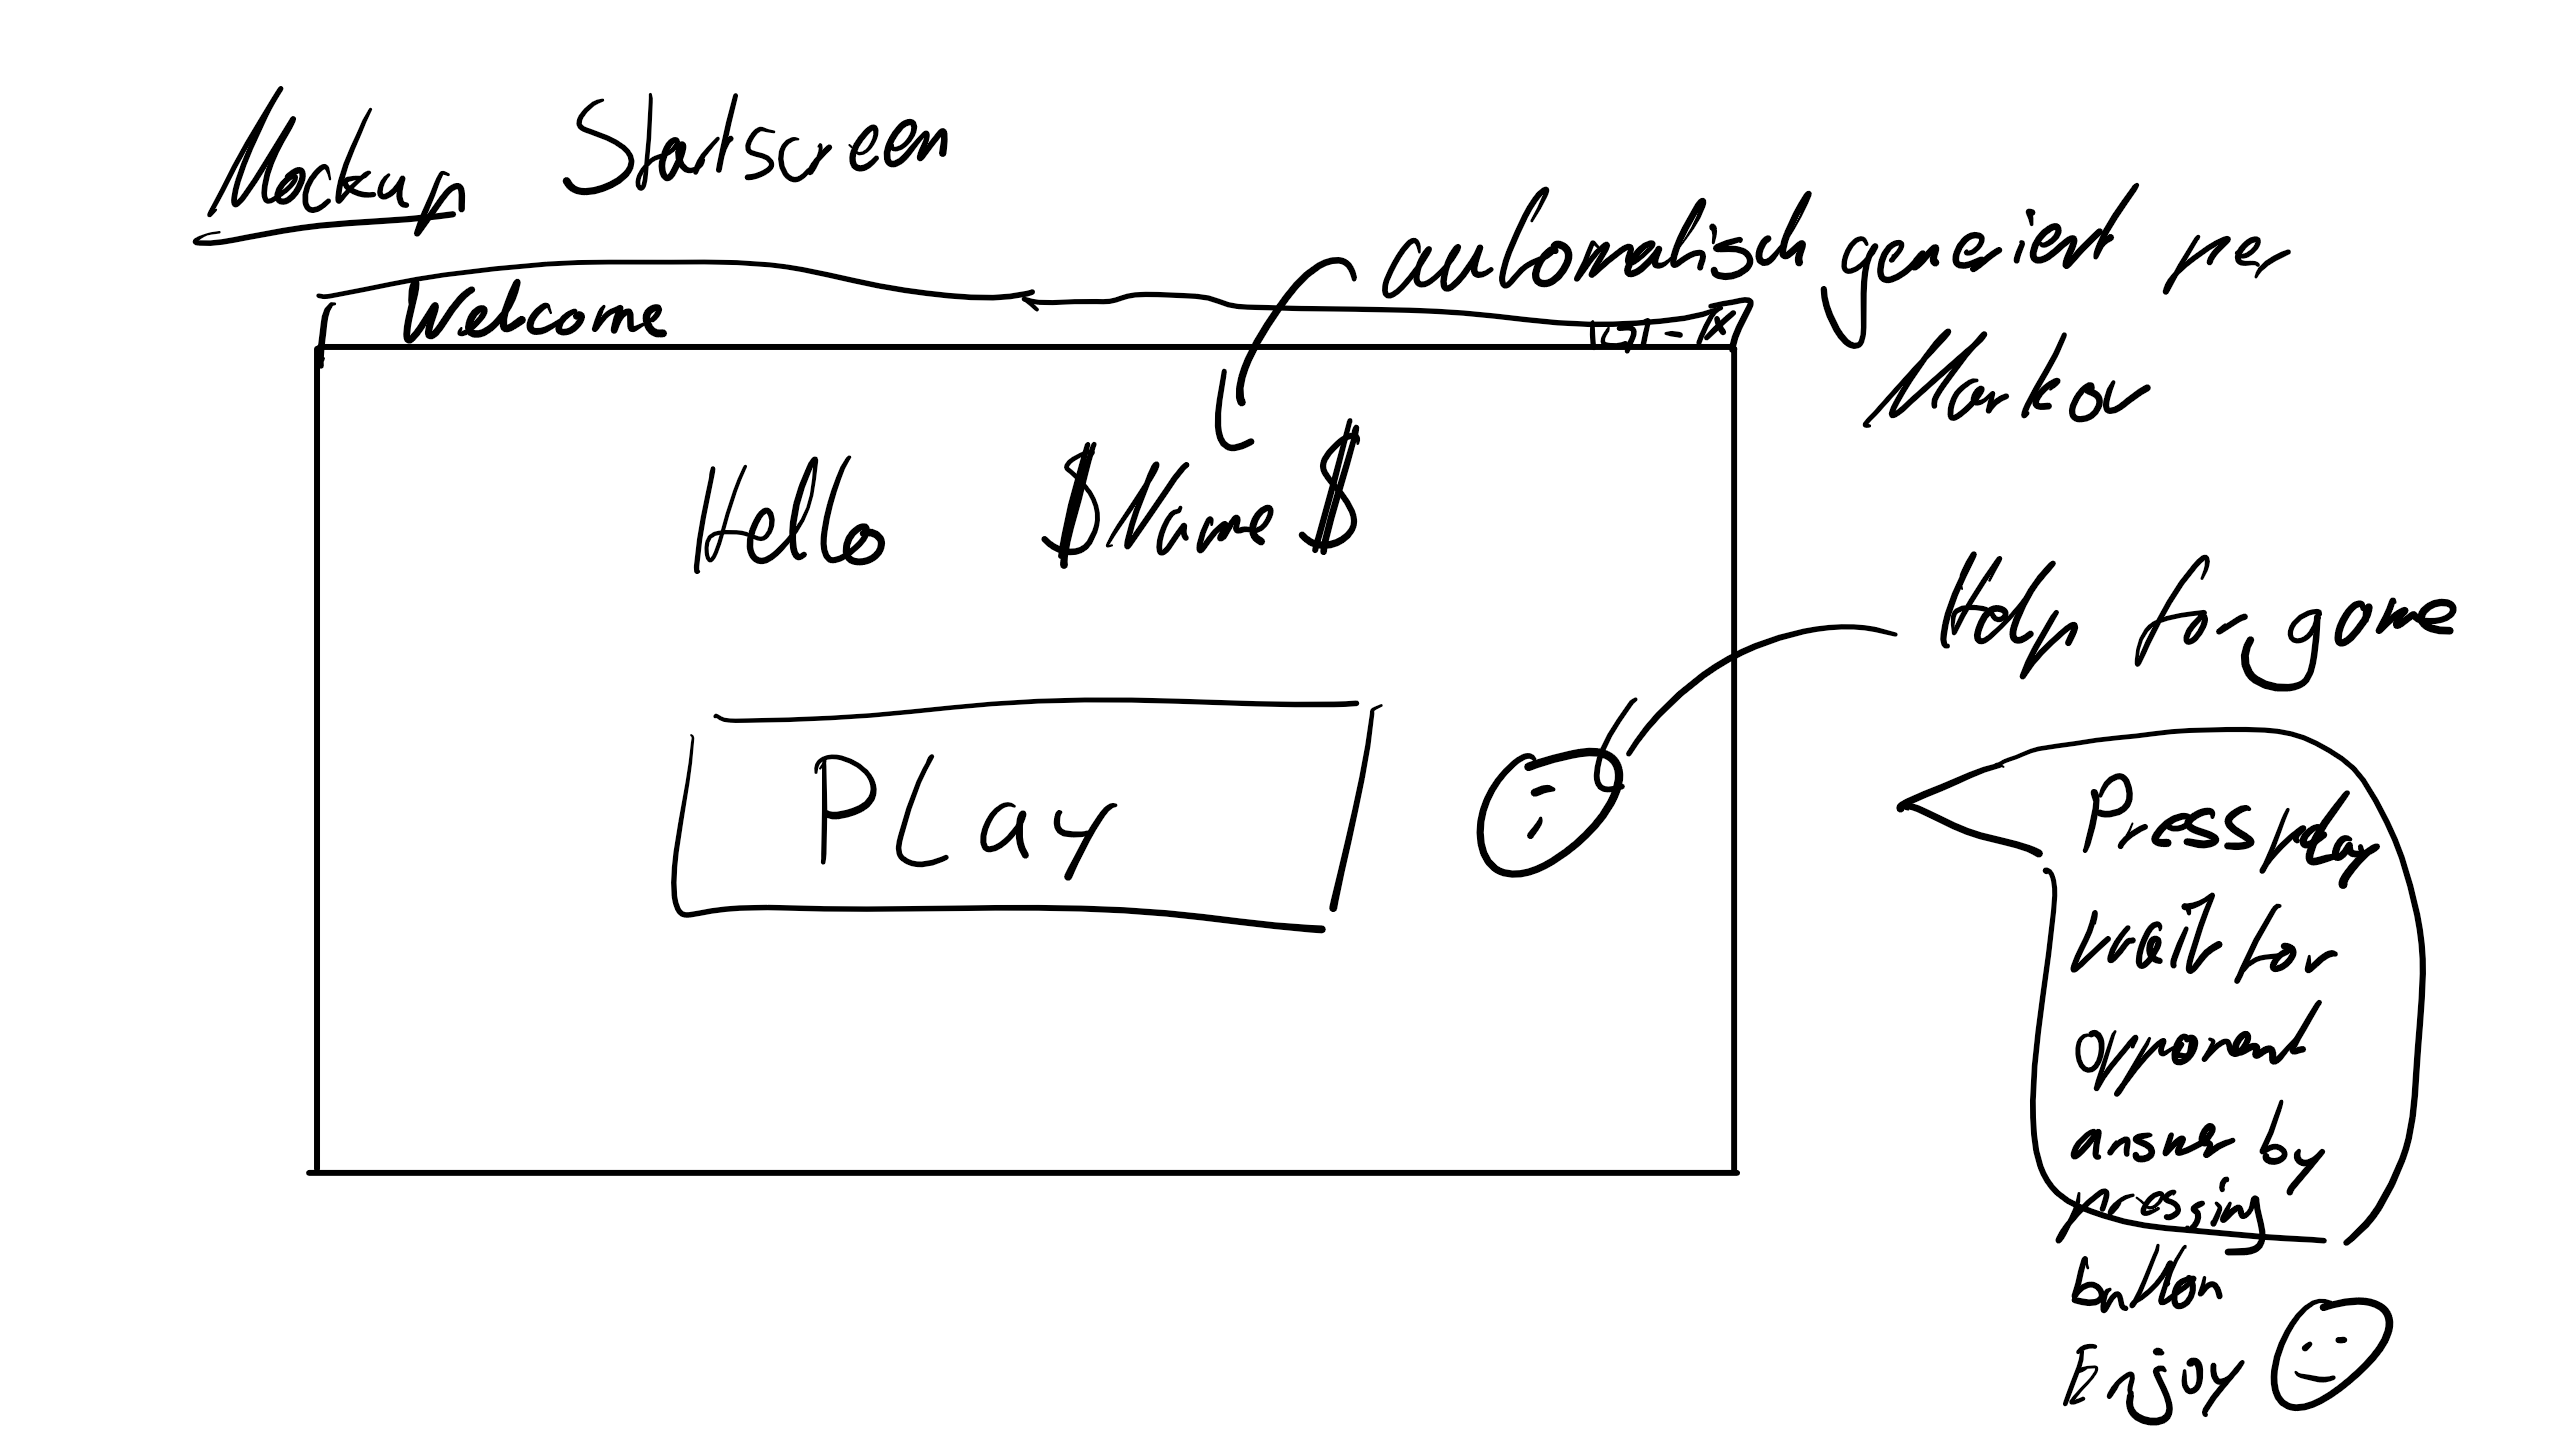 Mockup Startscreen
automatisch generiert per
Markov
Welcome
Hello $Name$
Help for game
PLay
Press play
wait for
opponent
answer by
pressing
button
Enjoy